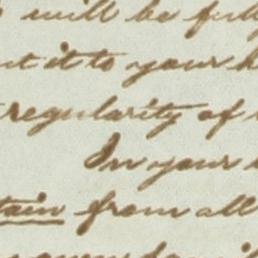 will be full
it to your
regularity of
In your
tain from all